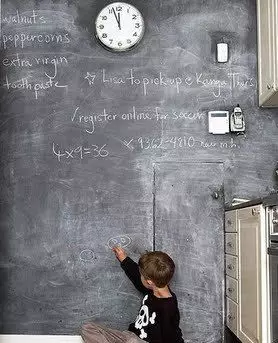 walnuts
peppercorns
extra virgin
toothpaste
Lisa to pick up @ Kanga Thurs
✓register online for soccer
4x9=36
9362-4810